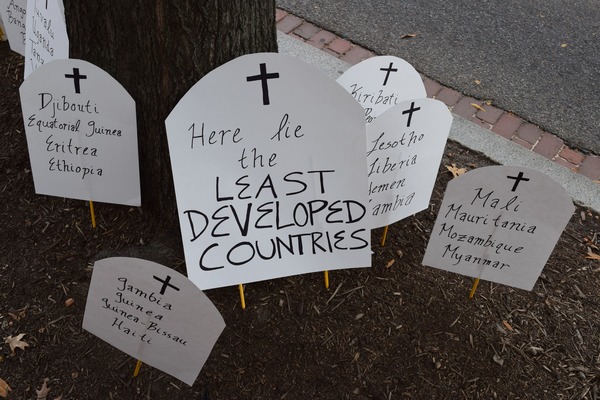 Tuvalu
Uganda
Djibouti
Equatorial Guinea
Eritrea
Ethiopia
Here lie
the
LEAST
DEVELOPED
COUNTRIES
Kiribati
Lesotho
Liberia
Mali
Mauritania
Mozambique
Myanmar
Gambia
Guinea
Guinea-Bissau
Haiti